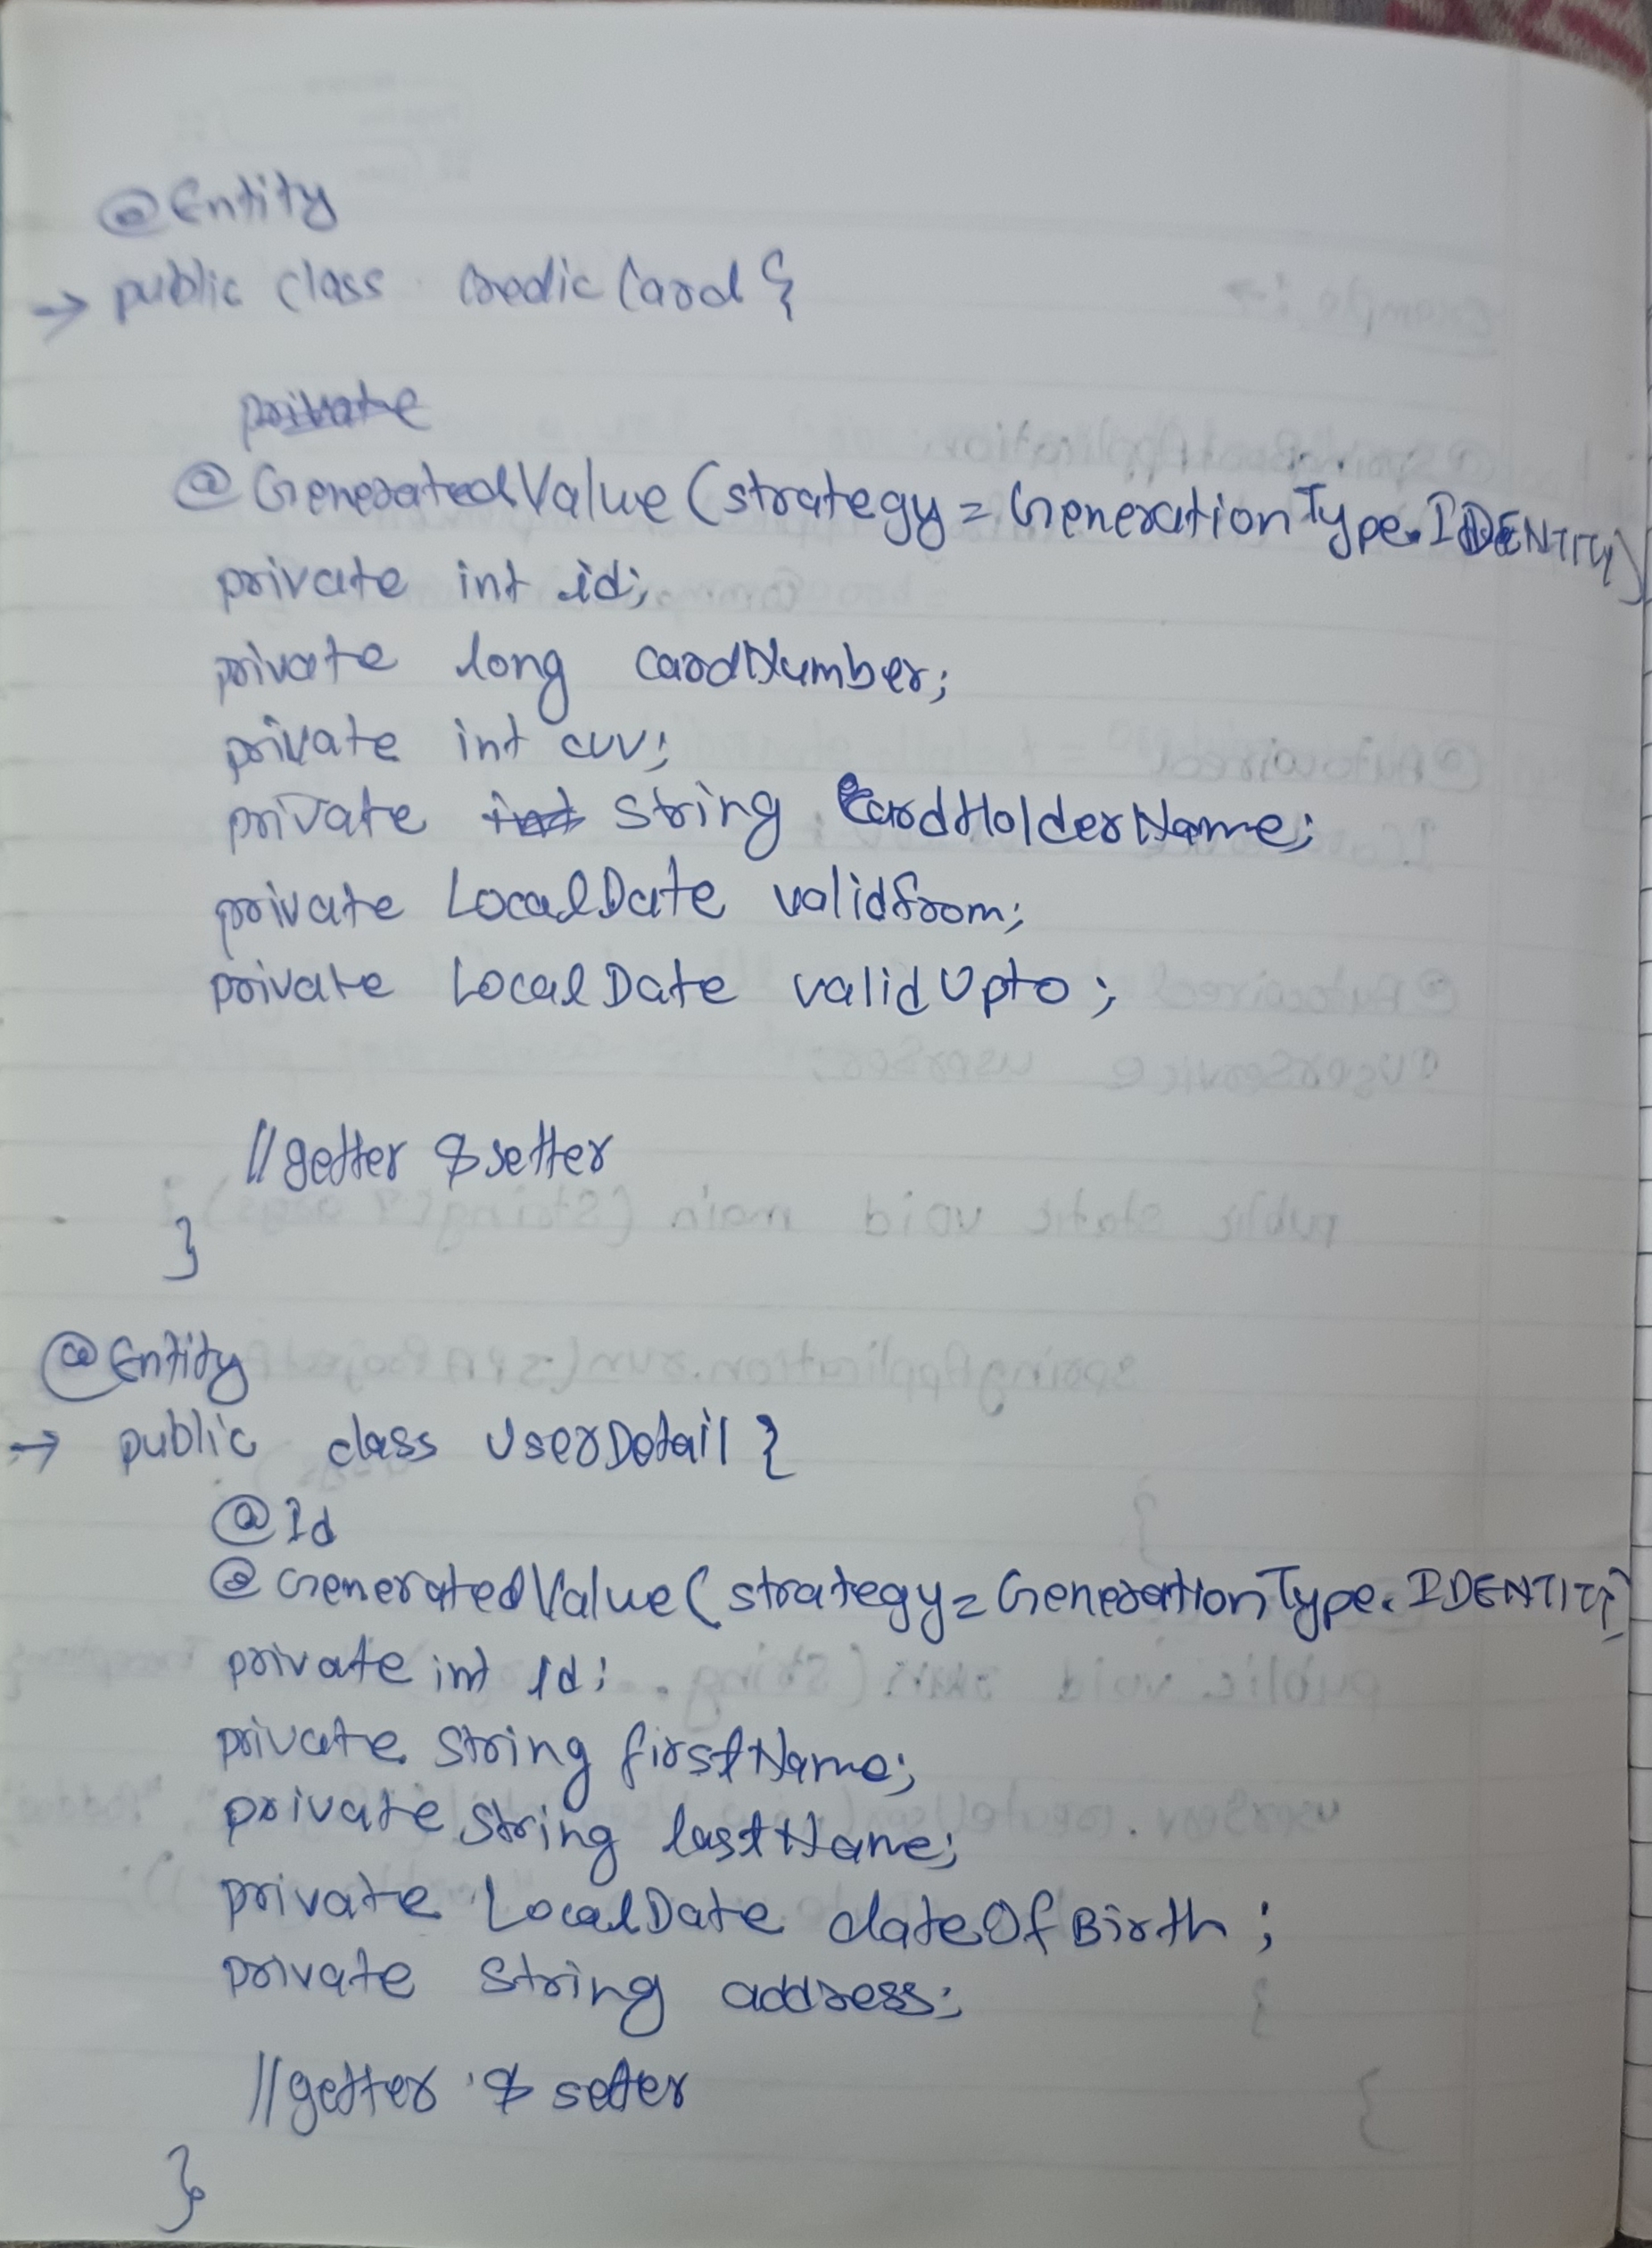 @Entity
→ public class CredicCard {
private
@GeneratedValue(strategy=GenerationType.IDENTITY)
private int id;
private long cardNumber;
private int cvv;
private int string CardHolderName;
private LocalDate validfrom;
private LocalDate validUpto;
//getter & setter
}
@Entity
→ public class UserDetail {
@Id
@GeneratedValue(strategy=GenerationType.IDENTITY)
private int Id;
private string firstName;
private string lastName;
private LocalDate dateOfBirth;
private string address;
//getter & setter
}